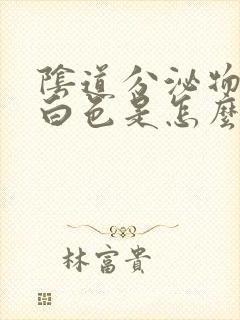 陰道分泌物
白色是怎麼
林富貴